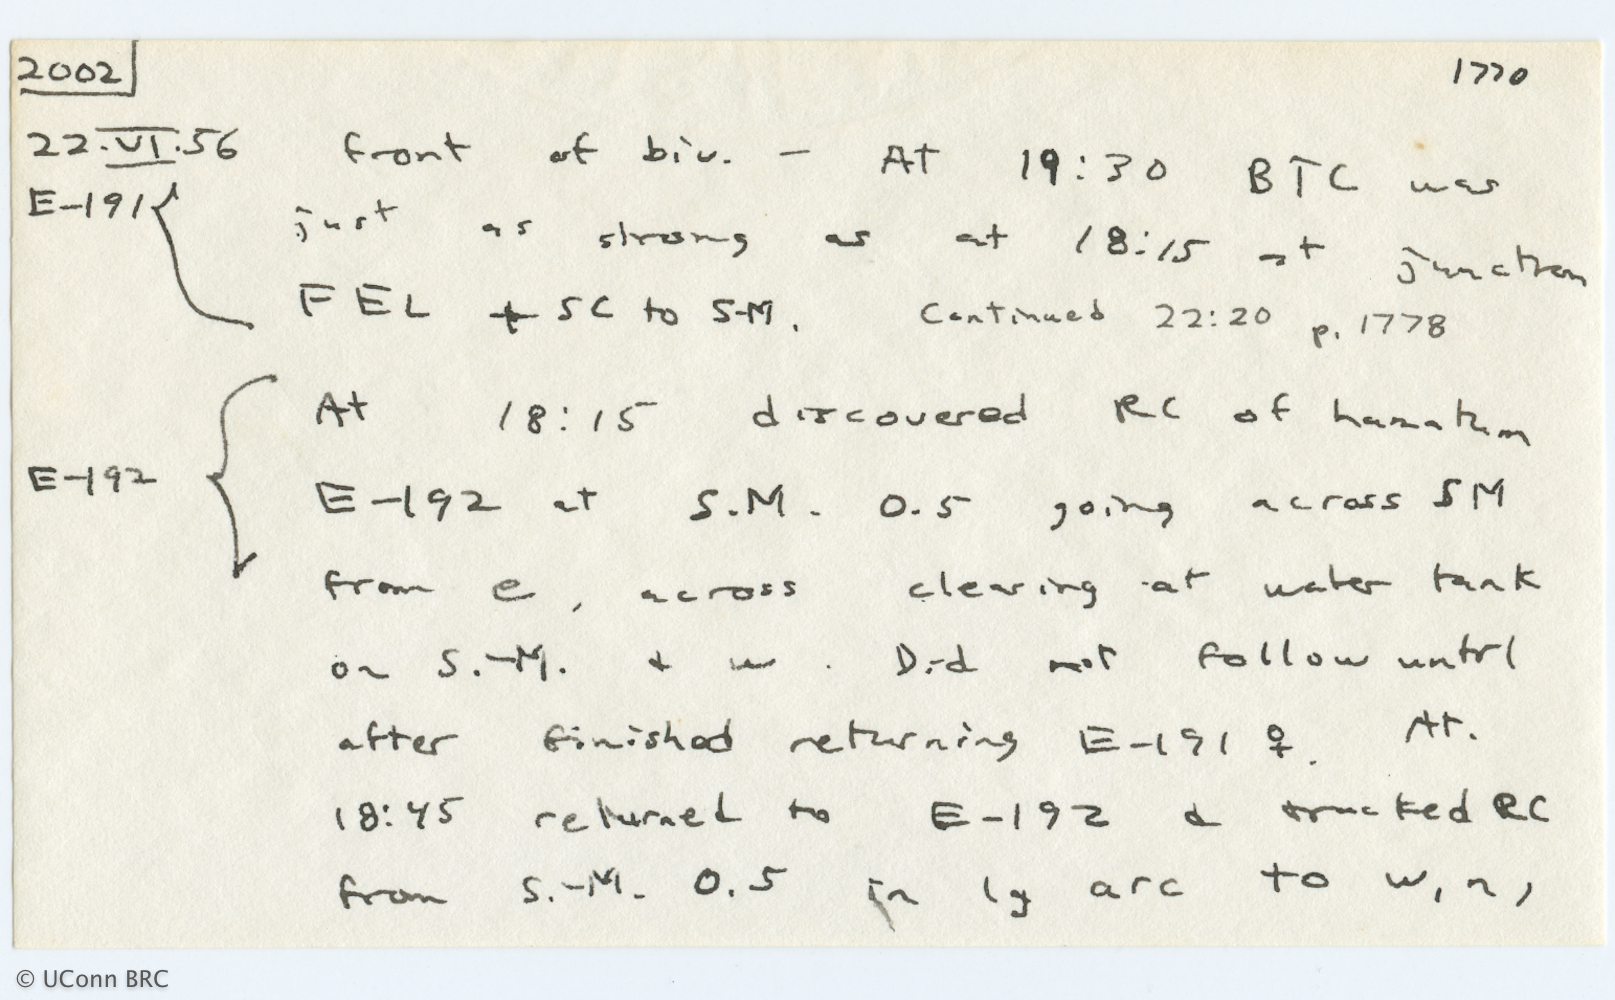 2002 1770
22.VI.56 front of biv. - At 19:30 BTC was
E-191 just as strong as at 18:15 at junction
FEL + SC to S-M. Continued 22:20 p. 1778
At 18:15 discovered RC of hamatum
E-192 E-192 at S.M. 0.5 going across SM
from e, across clearing at water tank
on S.-M. + w. Did not follow until
after finished returning E-191 ♀. At.
18:45 returned to E-192 & trucked RC
from S.-M. 0.5 in lg arc to w, n,
© UConn BRC